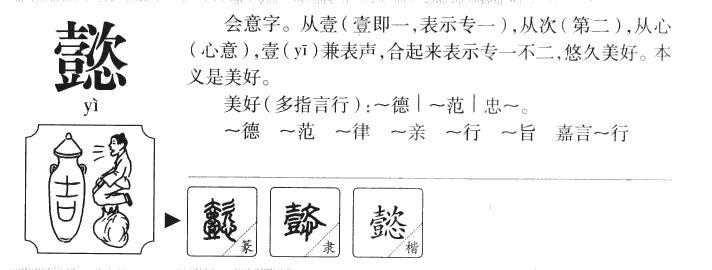 懿
yì
会意字。从壹(壹即一,表示专一),从次(第二),从心
(心意),壹(yī)兼表声,合起来表示专一不二,悠久美好。本
义是美好。
美好(多指言行):～德|～范|忠～。
～德 ～范 ～律 ～亲 ～行 ～旨 嘉言～行
懿 篆
懿 隶
懿 楷